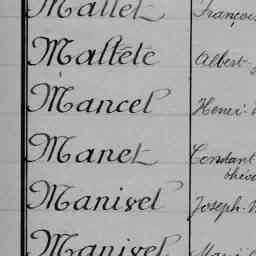 Mallet François
Maltête Albert
Mancel Henri
Manet Constant
Manivel Joseph
Manivel